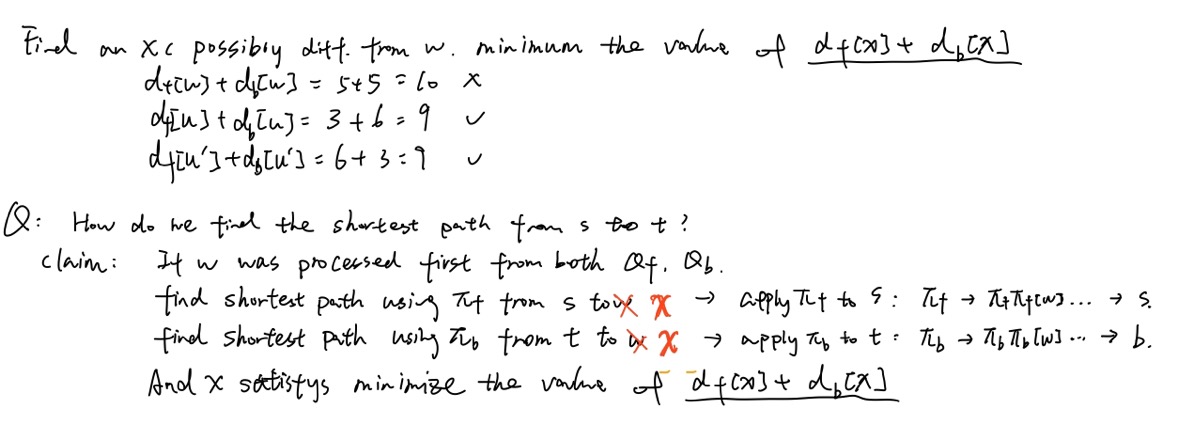 Find an x ⊂ possibly diff. from w. minimum the value of df[x] + db[x]
df[w] + db[w] = 5+5 = 10 ×
df[u] + db[u] = 3 + 6 = 9 ✓
df[u'] + db[u'] = 6 + 3 = 9 ✓
Q: How do we find the shortest path from s to t?
claim: If w was processed first from both Qf, Qb.
find shortest path using πf from s to w x → apply πf to s: πf → πf πf[w] ... → s.
find shortest path using πb from t to w x → apply πb to t: πb → πb πb[w] ... → b.
And x satistys minimize the value of df[x] + db[x]